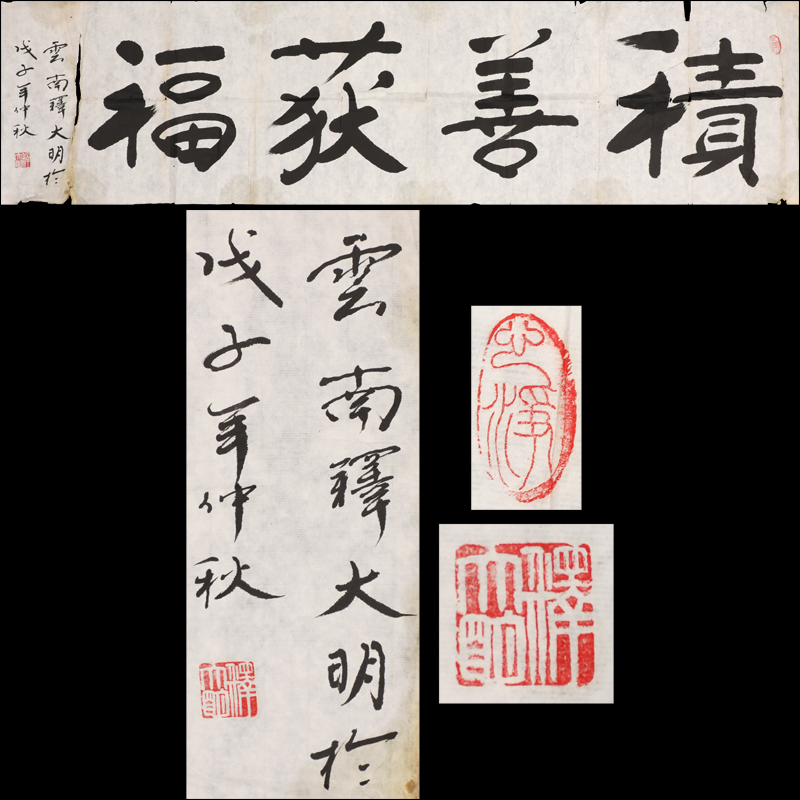 積善获福
雲南釋大明於
戊子年仲秋
雲南釋大明於
戊子年仲秋
心淨
釋大明